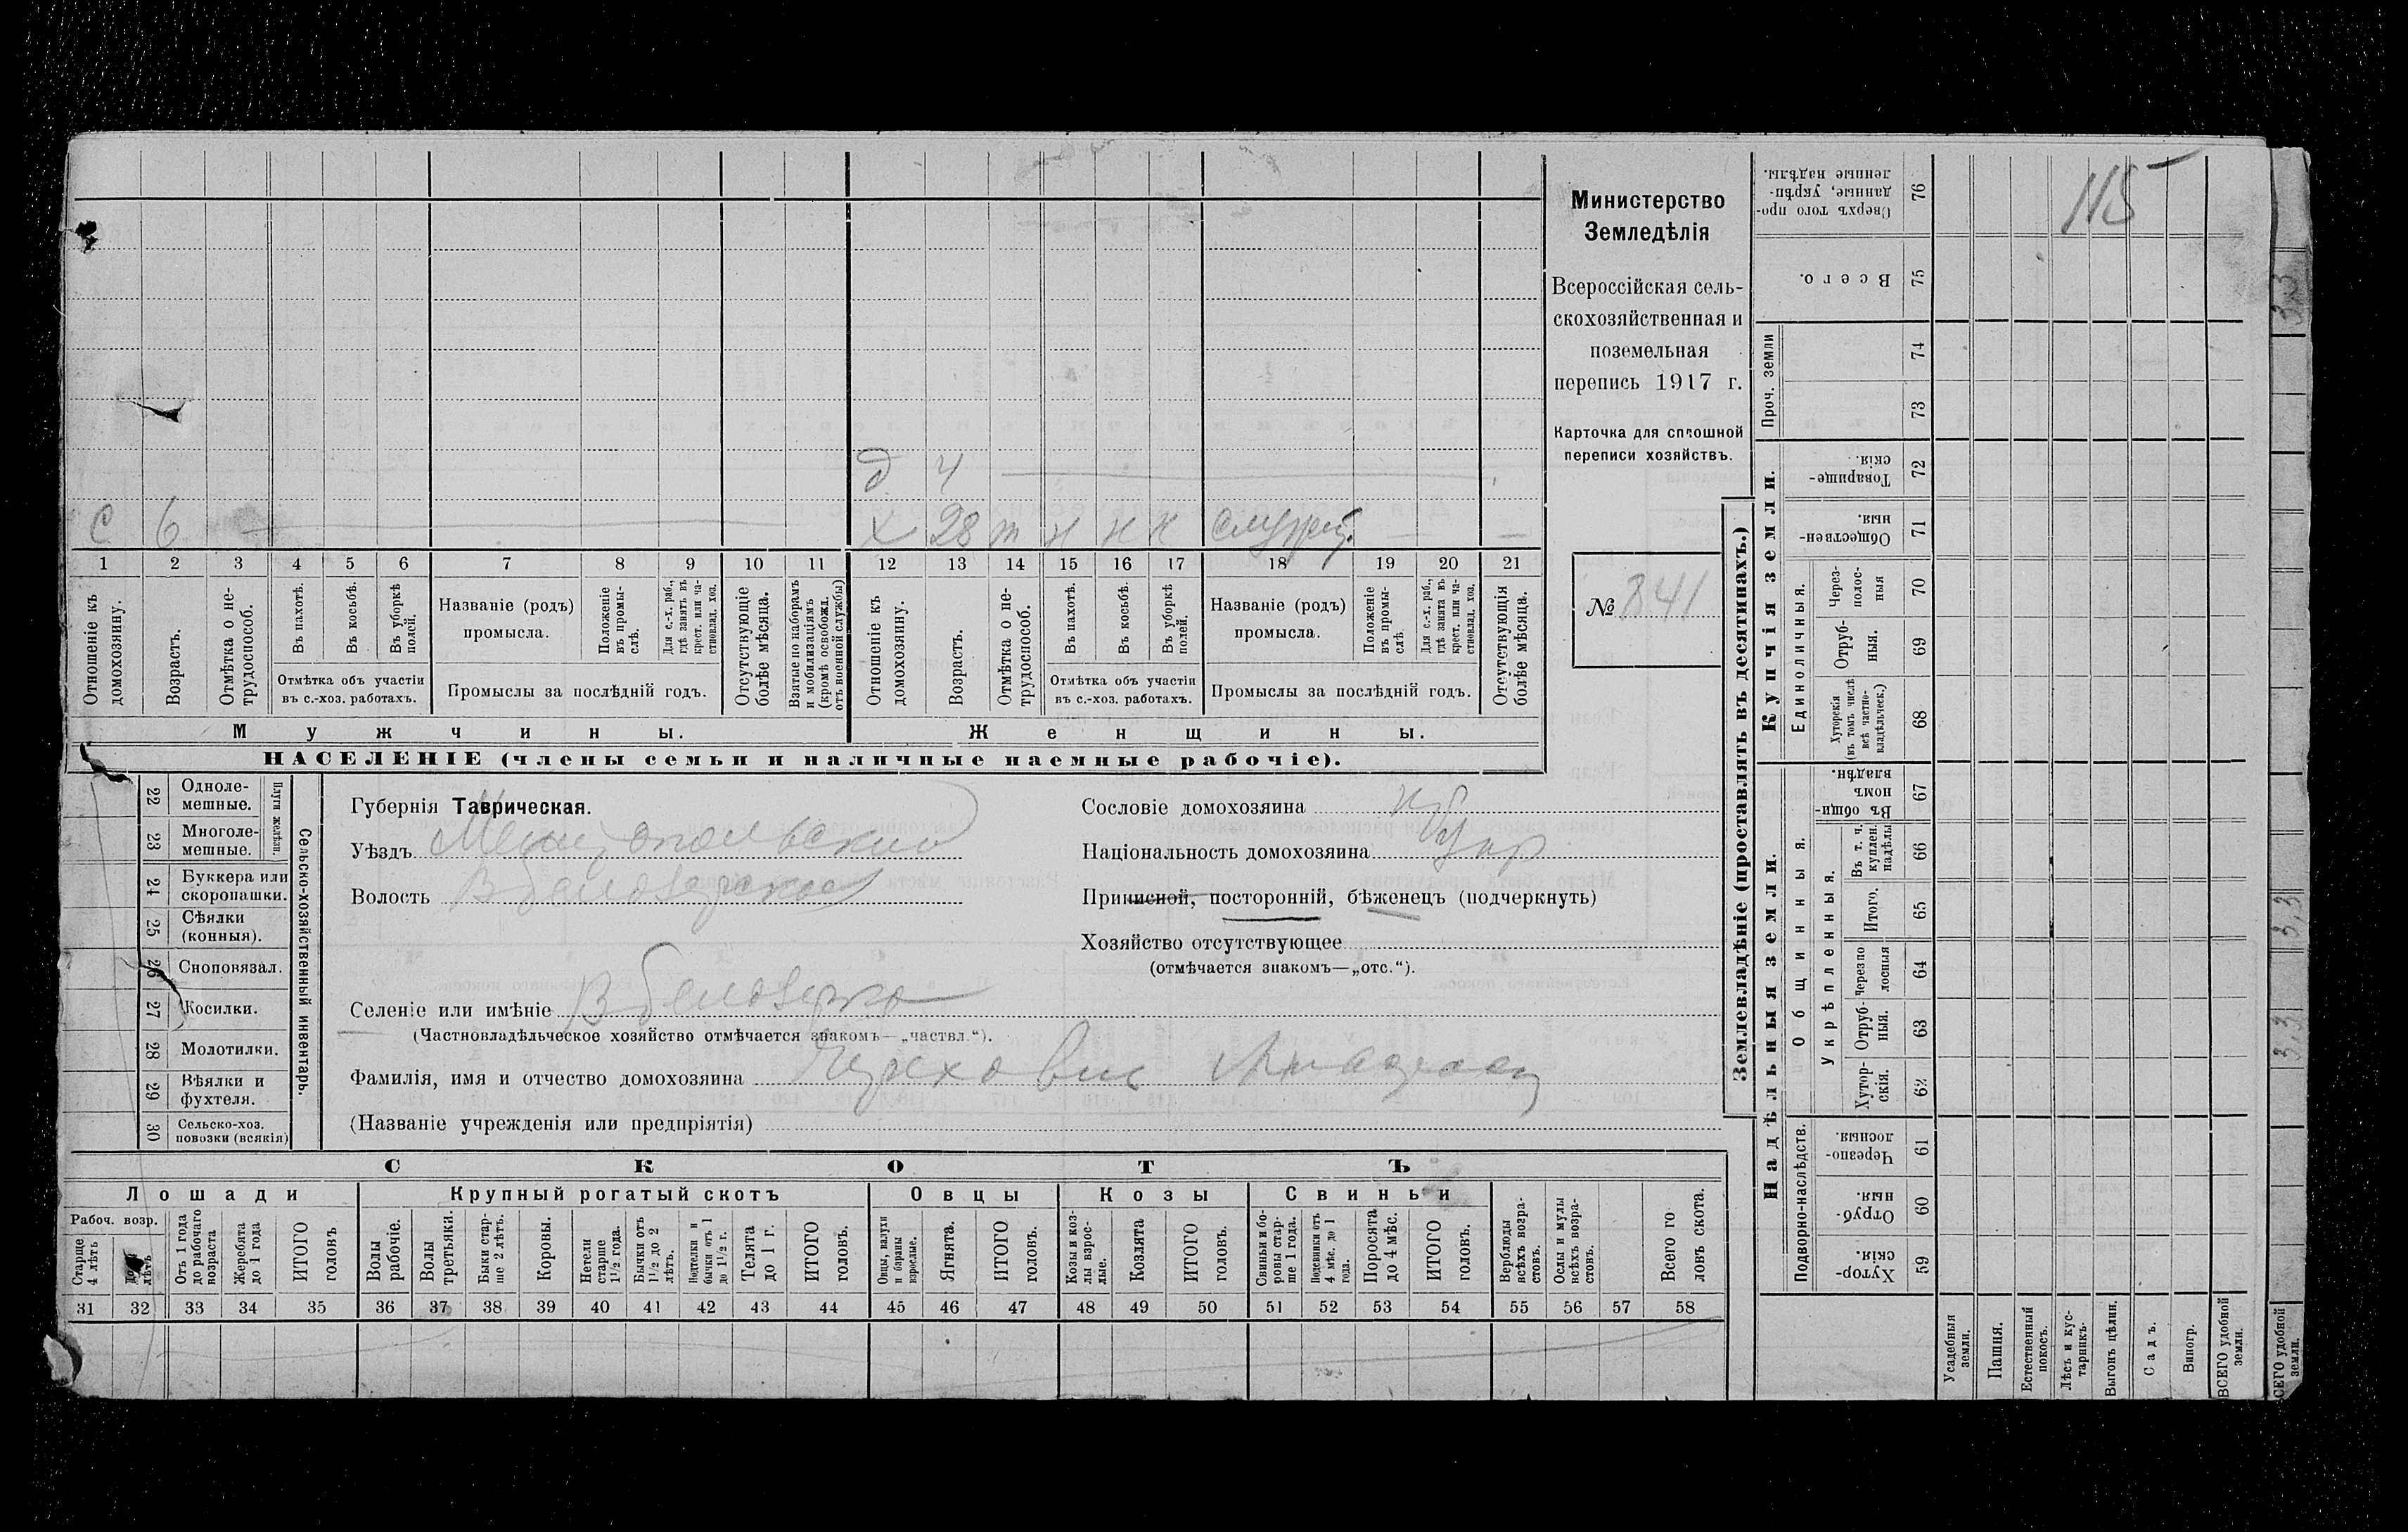 115
Министерство
Земледѣлія
Всероссійская сель-
скохозяйственная и
поземельная
перепись 1917 г.
Карточка для сплошной
переписи хозяйствъ.
№ 841
д 4
с 6
х 28 т н н н
1 2 3 4 5 6 7 8 9 10 11 12 13 14 15 16 17 18 19 20 21
Отношеніе къ домохозяину.
Возрастъ.
Отмѣтка о не-трудоспособ.
Въ пахотѣ.
Въ косьбѣ.
Въ уборкѣ полей.
Отмѣтка объ участіи
въ с.-хоз. работахъ.
Названіе (родъ)
промысла.
Положеніе въ промы-слѣ.
Для с.-х. раб., гдѣ занятъ въ крест. или ча-стновлад. хоз.
Промыслы за послѣдній годъ.
Отсутствующіе болѣе мѣсяца.
Взятые по наборамъ и мобилизаціямъ (кромѣ освобожд. отъ военной службы)
Отношеніе къ домохозяину.
Возрастъ.
Отмѣтка о не-трудоспособ.
Въ пахотѣ.
Въ косьбѣ.
Въ уборкѣ полей.
Отмѣтка объ участіи
въ с.-хоз. работахъ.
Названіе (родъ)
промысла.
Положеніе въ промы-слѣ
Для с.-х. раб., гдѣ занята въ крест. или ча-стновлад. хоз.
Промыслы за послѣдній годъ.
Отсутствующія болѣе мѣсяца.
Мужчины. Женщины.
НАСЕЛЕНІЕ (члены семьи и наличные наемные рабочіе).
22 Одноле-мешные.
23 Многоле-мешные.
Плуги желѣзн.
24 Буккера или скоропашки.
25 Сѣялки (конныя).
26 Сноповязал.
27 Косилки.
28 Молотилки.
29 Вѣялки и фухтеля.
30 Сельско-хоз. повозки (всякія)
Сельско-хозяйственный инвентарь.
Губернія Таврическая.
Уѣздъ Мелитопольский
Волость В белозерская
Селеніе или имѣніе В белозерка
(Частновладѣльческое хозяйство отмѣчается знакомъ—„частвл.“).
Фамилія, имя и отчество домохозяина
(Названіе учрежденія или предпріятія)
Сословіе домохозяина
Національность домохозяина Укр
Приписной, посторонній, бѣженецъ (подчеркнуть)
Хозяйство отсутствующее
(отмѣчается знакомъ—„отс.“).
СКОТЪ
Лошади Крупный рогатый скотъ Овцы Козы Свиньи
Рабоч. возр.
Старше 4 лѣтъ
Отъ 1 года до рабочаго возраста
Жеребята до 1 года
ИТОГО головъ
Волы рабочіе.
Волы третьяки.
Быки стар-ше 2 лѣтъ.
Коровы.
Нетели старше 1½ года.
Бычки отъ 1½ до 2 лѣтъ.
Подтелки и бычки отъ 1 до 1½ г.
Телята до 1 г.
ИТОГО головъ.
Овцы, валухи и бараны взрослые.
Ягнята.
ИТОГО головъ.
Козы и коз-лы взрос-лые.
Козлята
ИТОГО головъ.
Свиньи и бо-ровы стар-ше 1 года.
Подсвинки отъ 4 мѣс. до 1 года.
Поросята до 4 мѣс.
ИТОГО головъ.
Верблюды всѣхъ возра-стовъ.
Ослы и мулы всѣхъ возра-стовъ.
Всего го-ловъ скота.
31 32 33 34 35 36 37 38 39 40 41 42 43 44 45 46 47 48 49 50 51 52 53 54 55 56 57 58
Землевладѣніе (проставлять въ десятинахъ.)
Сверхъ того про-данные, укрѣп-ленные надѣлы. 76
Всего. 75
Проч. земли 74 73
Купчія земли.
Товарище-скія. 72
Обществен-ныя. 71
Единоличныя.
Через-полос-ныя 70
Отруб-ныя. 69
Хуторскія (въ томъ числѣ всѣ частно-владѣльческ.) 68
Надѣльныя земли.
Общинныя.
Въ общи-номъ владѣн. 67
Укрѣпленныя.
Въ т. ч. куплен. надѣлы 66
Итого. 65
Черезпо лосныя 64
Отруб-ныя. 63
Хутор-скія. 62
Подворно-наслѣдств.
Черезпо-лосныя. 61
Отруб-ныя. 60
Хутор-скія. 59
Усадебныя земли.
Пашня.
Естественный покосъ.
Лѣсъ и кус-тарникъ.
Выгонъ цѣлин.
Садъ.
Виногр.
ВСЕГО удобной земли.
3,3
3,3
3,3
СЕГО удобной земли.